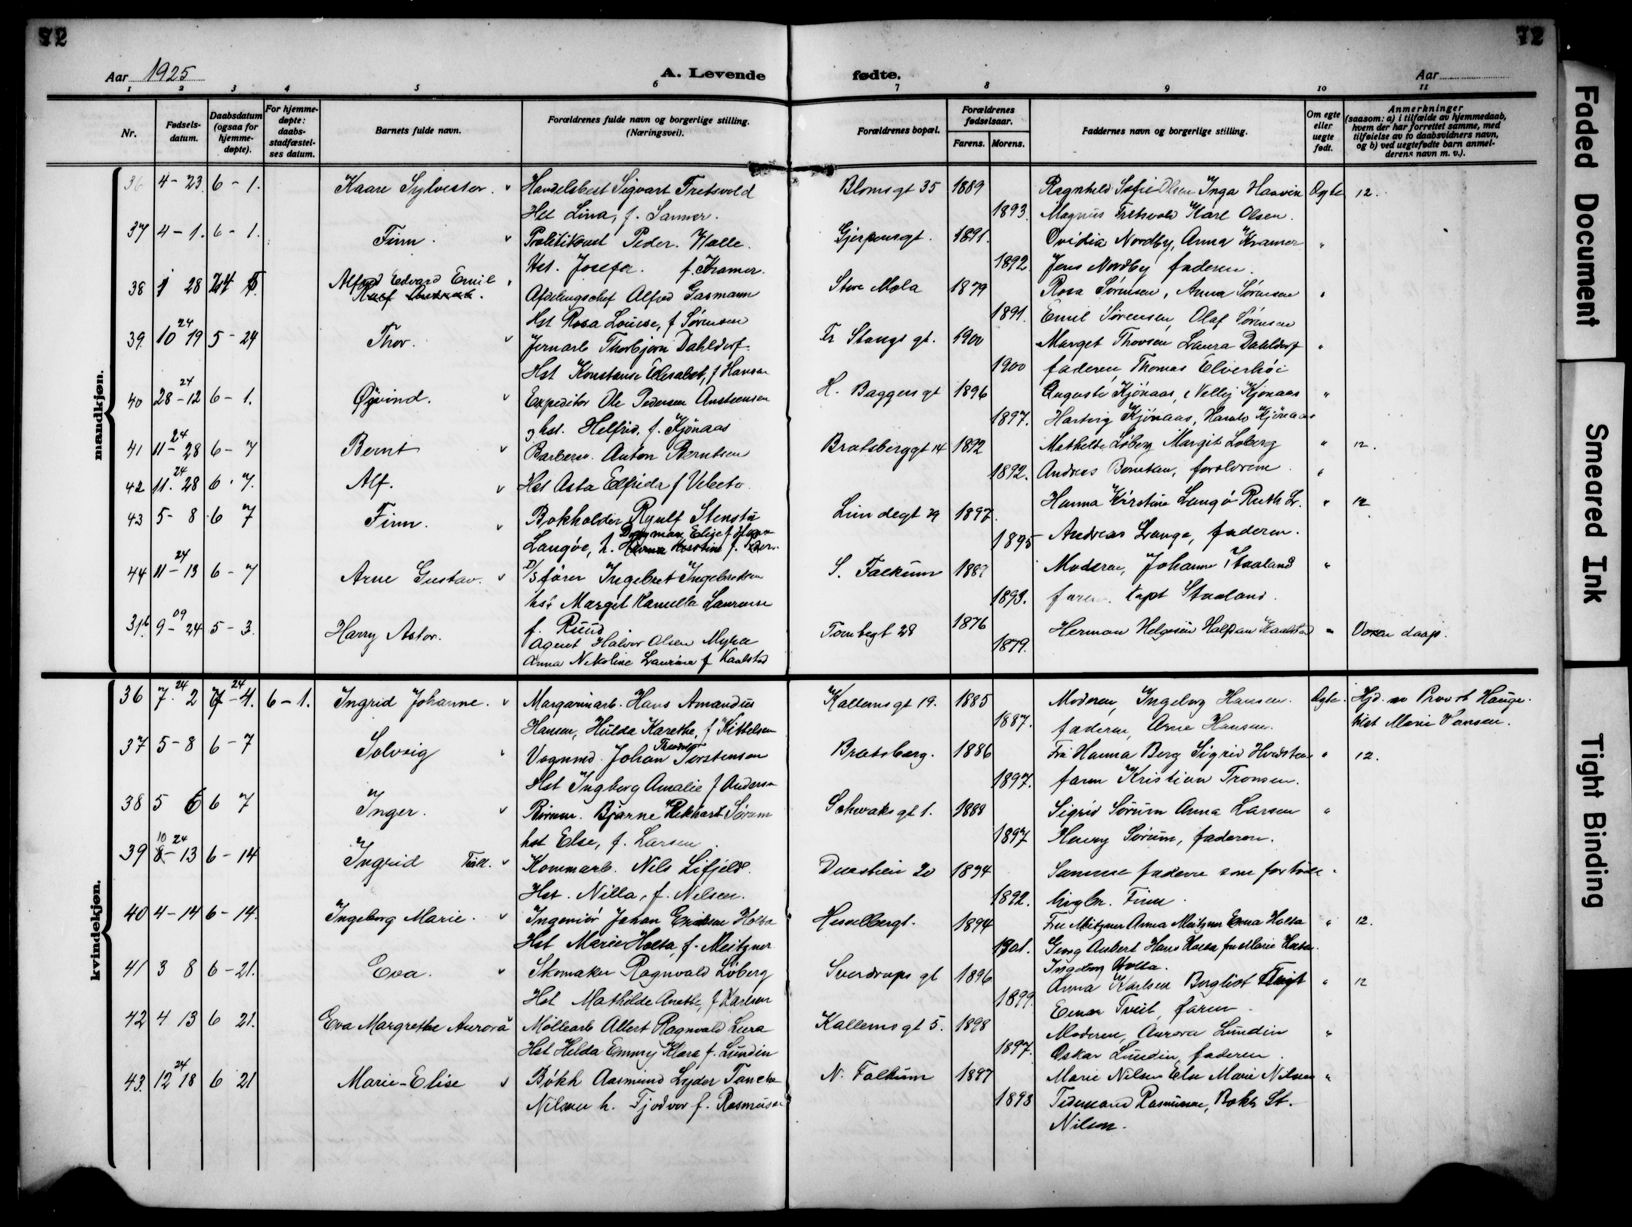 72
72
Aar 1925
A. Levende
fødte.
Aar
1 2 3 4 5 6 7 8 9 10 11
Nr.
Fødsels-
datum.
Daabsdatum
(ogsaa for
hjemme-
døpte).
For hjemme-
døpte:
daabs-
stadfæstel-
ses datum.
Barnets fulde navn.
Forældrenes fulde navn og borgerlige stilling.
(Næringsvei).
Forældrenes bopæl.
Forældrenes
fødselsaar.
Farens. Morens.
Faddernes navn og borgerlige stilling.
Om egte
eller
uegte
født.
Anmerkninger
(saasom: a) i tilfælde av hjemmedaab,
hvem der har forrettet samme, med
tilføielse av to daabsvidners navn,
og b) ved uegtefødte barn anmel-
derens navn m. v.).
mandkjøn.
36 4-23 6-1. Kaare Sylvester. Handelsbest Sigvart Fretsvold Blomsgt 35 1889 Ragnhild Sofie Olsen Inga Haavin Egte 12.
Hst Lina, f. Sanner. 1893. Magnus Fretsvold Karl Olsen.
37 4-1. 6-1. Finn. Peder Walle. Gjerpensgt. 1891. Ovidia Nordby, Anna Kramer "
Hst. Josefa. f. Kramer. 1892 Jens Nordby faderen.
38 1 28 Alfred Edvard Emil Afdelingschef Alfred Gasmann Store Mola 1879 Rosa Sørensen, Anna Sørensen "
Hst Rosa Louise, f Sørensen 1891. Emil Sørensen, Olaf Sørensen
39. 10 24 19 5-24 Thor. Jernarb Thorbjørn Dahldorf. Fr Stangs gt. 1900 Marget Thovsen Laura Dahldorf "
Hst Konstanse Elisabet, f Hansen 1900 faderen, Thomas Elverhøi
40 28-12 24 6-1. Øivind. Expeditør Ole Pedersen Austeensen H. Baggers gt 1896 Auguste Kjønaas, Nelly Kjønaas "
hst. Helfrid. f. Kjønaas 1897. Hartvig Kjønaas, Harald Kjønaas
41 11-28 24 6-7 Bernt Barberer. Anton Berntsen Bratsberggt 14 1872 Mathilde Løberg Margit Løberg " 12.
42 11.28 24 6.7. Alf. Hst Asta Elfrida f Vebeto. 1892. Andreas Berntsen, forældrene. "
43 5-8 6 7 Finn. Bokholder Rynlf Stensto Lindegt 29 1897 Hanna Kirstine Langø Ruth Lr. " 12
Langøe, h. Dagmar Elise f Hagen 1895 Andreas Lange, faderen.
44 11-13 24 6-7 Arne Gustav. D/S fører Ingebret Ingebretsen S. Falkum Moderen, Johanne Staaland "
hst Margit Kamilla Laurense 1893. faren. Kapt Staaland.
f. Ruud
31b 9-24 09 5-3. Harry Astor. Agent Halvor Olsen Myhra Tomtegt 28 1876 Herman Helgesen Halfdan Kaalstad " Voxen daap.
Anna Nikoline Laurine f Kaalstad 1879.
kvindekjøn.
36 7. 2 24 7-4 24 6-1. Ingrid Johanne. Margarinarb. Hans Amandus Kallemsgt 19. 1885 Moderen, Ingeborg Hansen. Egte. Hjd. av Provst Hauge.
Hansen, Hulda Karethe, f Kittelsen 1887. faderen, Arne Hansen. hist Marie Hansen.
37 5-8 6-7 Solveig Vognmd. Johan Torstensen Bratsberg. 1886 Fru Hanna Berg Sigrid Hvidsteen " 12.
Hst Ingborg Amalie f Andersen 1897. faren Kristian Tronsen.
38 5 6 6 7 Inger. Bjarne Rikhart Sørum Schevaks gt 1. 1888 Sigrid Sørum Anna Larsen "
hst Else, f. Larsen. 1897 Henry Sørum, faderen.
39 8-13 10 24 6-14 Ingrid Tvill. Kommarb. Nils Lifjeld. Duestien 20 1894 Samme faddere som for "
Hst. Nilla, f. Nelsen. 1892. Finn.
40 4-14 6-14. Ingeborg Marie. Ingeniør Johan Eriksen Holta Hesselbergt. 1894 Fru Meitzner Anna Meitzner Erna Holta " 12.
Hst Marie Holta, f. Meitzner 1901. Georg Aubert Hans Holta fru Marie Holta.
Ingeborg Holta.
41 3 8 6-21. Eva. Skomaker Ragnvald Løberg Sverdrups gt 1896 Anna Karlsen Bergliot " 12
Hst Mathilde Anethe, f Karlsen 1899. Einar Tveit, Faren.
42 4 13 6 21. Eva Margrethe Aurora Møllearb Albert Ragnvald Lura Kallemsgt 5. 1898 Moderen, Aurora Lundin "
Hst Hilda Emmy Klara f. Lundin 1897. Oskar Lundin, faderen.
43. 12 18 24 6 21 Marie-Elise Bokh Aasmund Lyder Tanche N. Falkum 1887 Marie Nilsen Else Marie Nilsen "
Nilsen h. Tjodvor f. Rasmusen 1893 Tidemand Rasmusen, Bokh St.
Nilsen.
Faded Document
Smeared Ink
Tight Binding